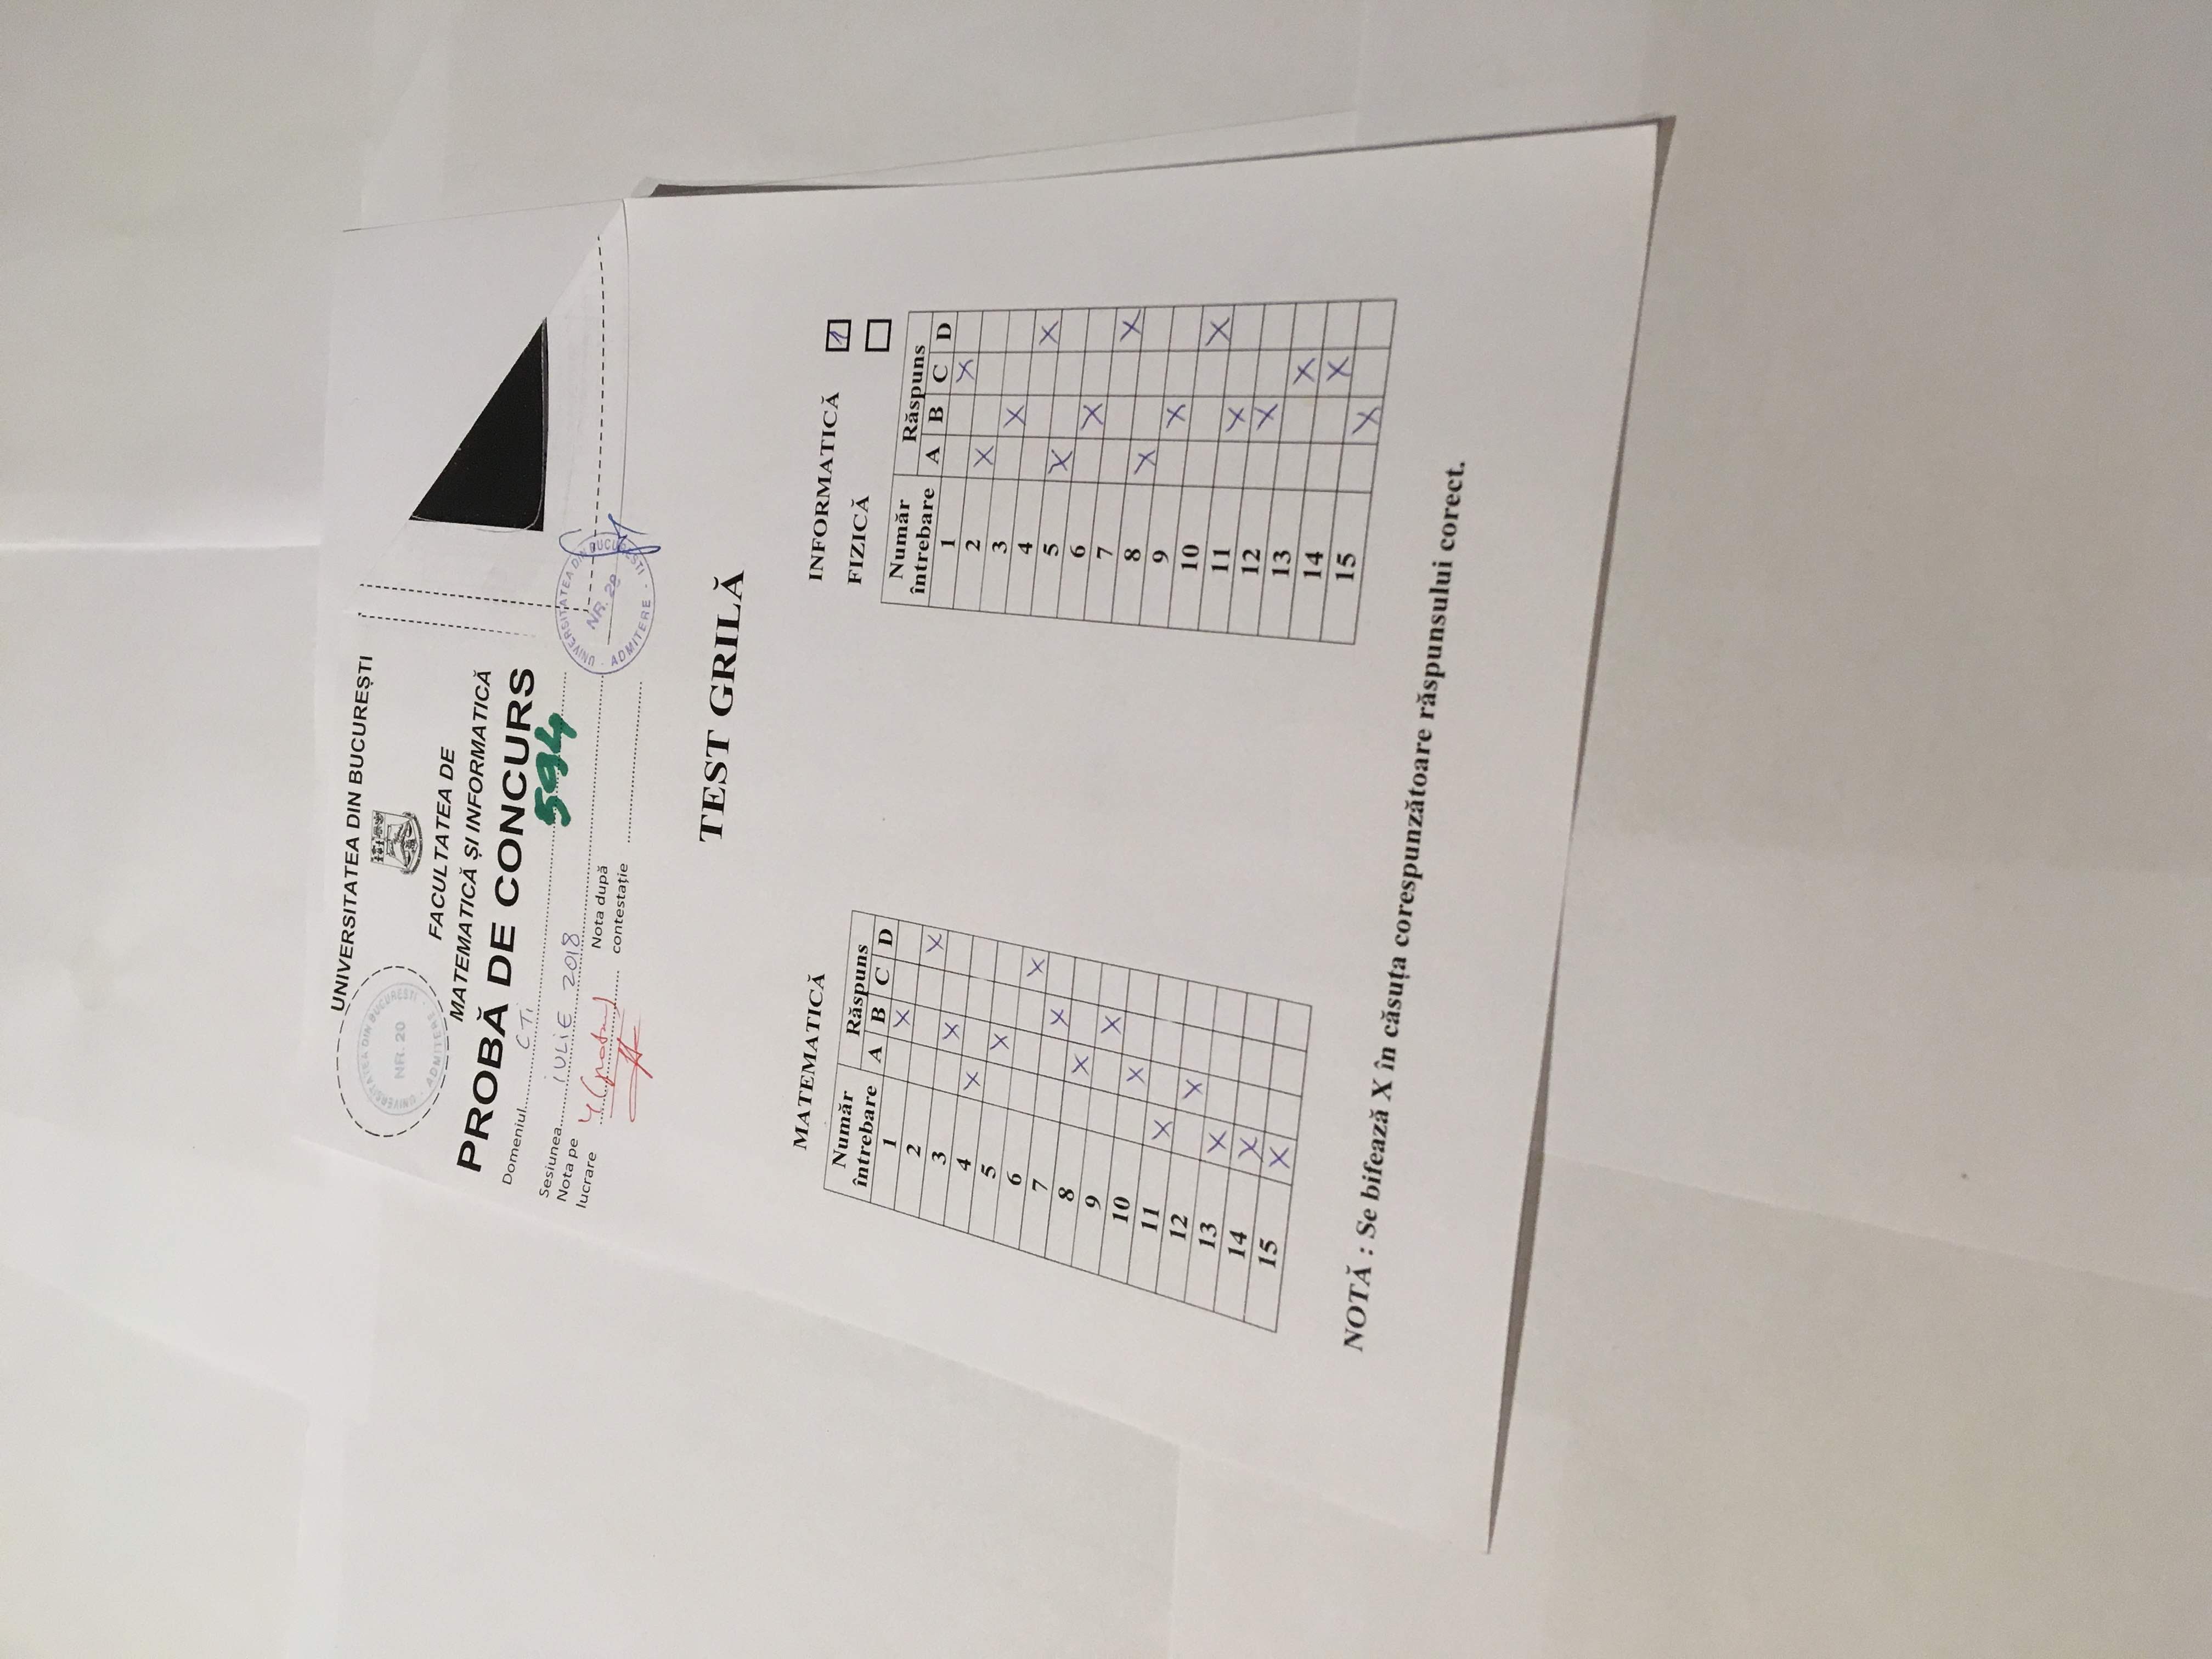 UNIVERSITATEA DIN BUCUREȘTI
UNIVERSITATEA DIN BUCUREȘTI
NR. 20
ADMITERE
FACULTATEA DE
MATEMATICĂ ȘI INFORMATICĂ
PROBĂ DE CONCURS
Domeniul.......... CTi
594
Sesiunea.......... iULiE 2018
Nota pe
lucrare 4 (patru)
Nota după
contestație
UNIVERSITATEA DIN BUCUREȘTI
NR. 20
ADMITERE
TEST GRILĂ
MATEMATICĂ
Număr
întrebare
Răspuns
A B C D
1 X
2 X
3 X
4 X
5 X
6 X
7 X
8 X
9 X
10 X
11 X
12 X
13 X
14 X
15 X
INFORMATICĂ 1
FIZICĂ
Număr
întrebare
Răspuns
A B C D
1 X
2 X
3 X
4 X
5 X
6 X
7 X
8 X
9 X
10 X
11 X
12 X
13 X
14 X
15 X
NOTĂ : Se bifează X în căsuța corespunzătoare răspunsului corect.